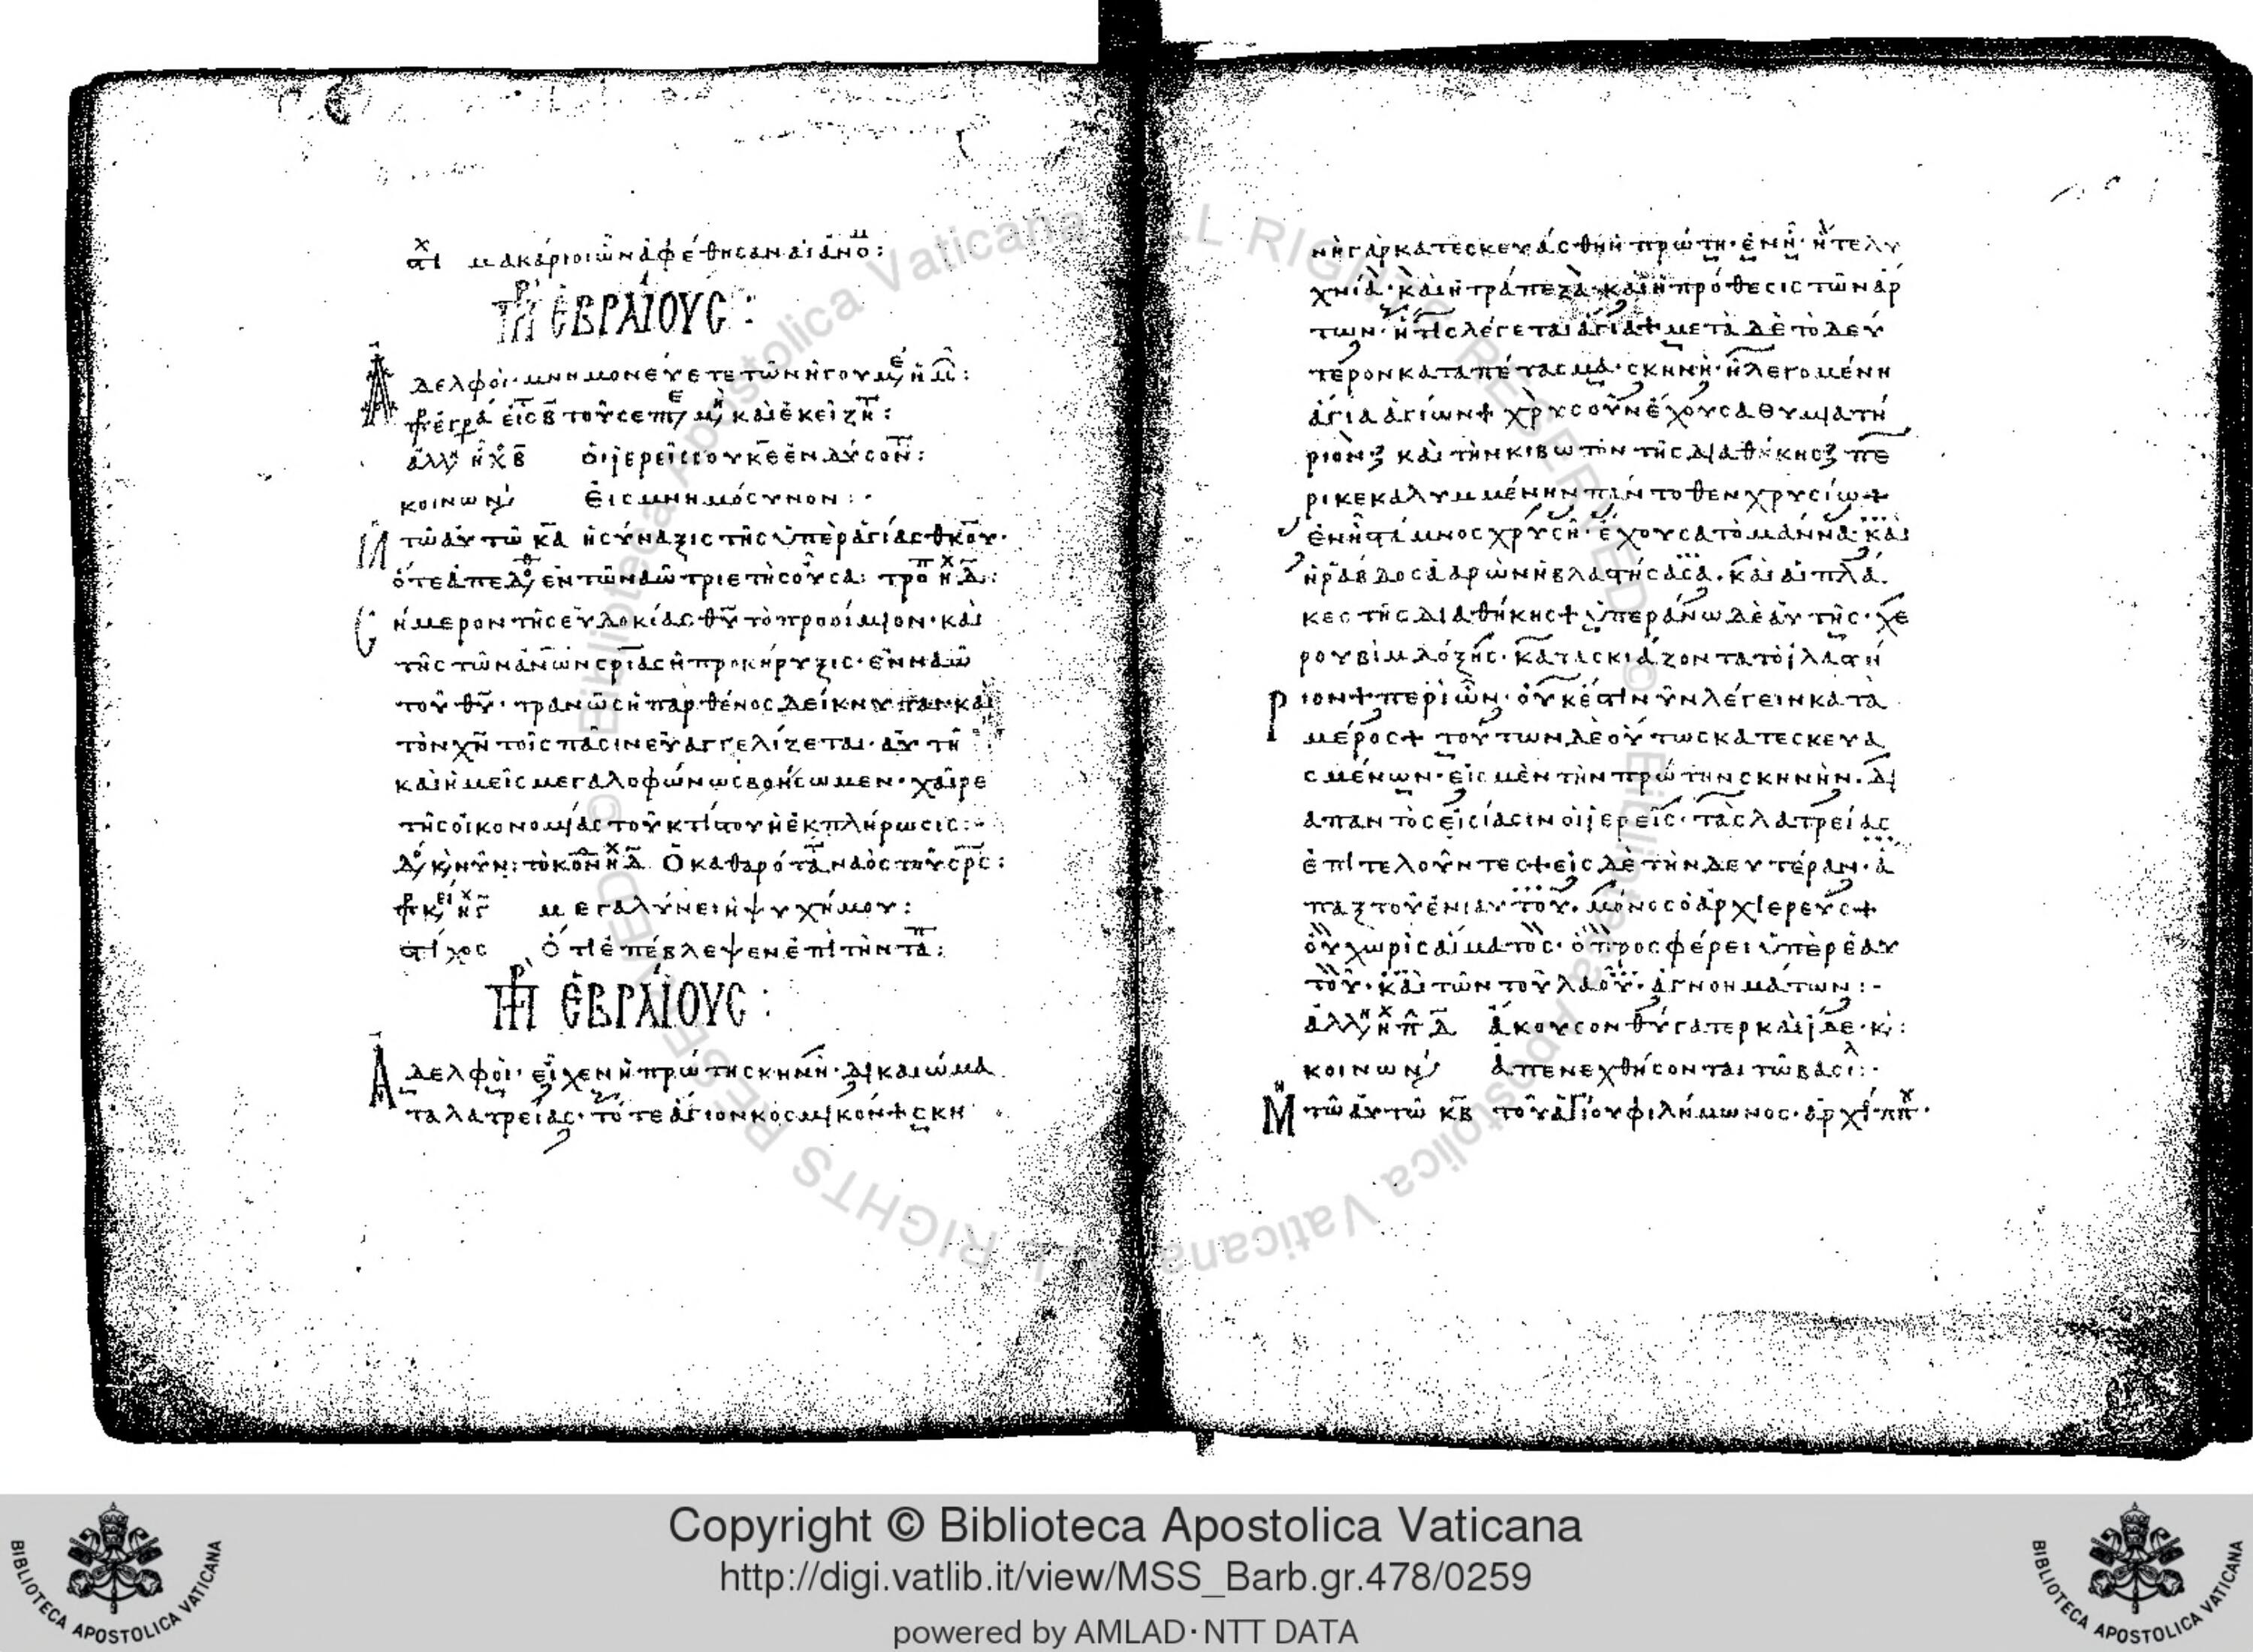 στι μακάριοι ὧν ἀφέθησαν αἱ ἀνο:
πρ ἑβραίους:
Ἀδελφοὶ· μνημονεύετε τῶν ἡγουμε ἡμ:
εἰς β τοῦ σεπ μη καὶ ἐκεῖ ζη:
ἀλλη ἠχ β οἱ ἱερεῖς σου κε ἐνδύσον:
κοινων εἰς μνημόσυνον:
τῶ αὐτῶ κα ἡ σύναξις τῆς ὑπεραγίας θκου·
ὅτε ἀπεδ ἐν τῶ ναῶ τριετὴς οὖσα: τρο ἠχ δ:
Σήμερον τῆς εὐδοκίας θυ τὸ προοίμιον· καὶ
τῆς τῶν ἀνων σριας ἡ προκήρυξις· ἐν ναῶ
τοῦ θυ· τρανῶς ἡ παρθένος δείκνυται· καὶ
τὸν χν τοῖς πᾶσιν εὐαγγελίζεται· αὐτῆ
καὶ ἡμεῖς μεγαλοφώνως βοήσωμεν· χαῖρε
τῆς οἰκονομίας τοῦ κτίστου ἡ ἐκπλήρωσις:
δο κ νῦν: τὸ κον ἠχ δ Ὁ καθαρότα ναὸς τοῦ σρς:
ἠχ γ μεγαλύνει ἡ ψυχή μου:
στίχος ὅτι ἐπέβλεψεν ἐπὶ τὴν ταπ:
πρ ἑβραίους:
Ἀδελφοὶ· εἶχεν ἡ πρώτη σκηνὴ· δικαιώμα
τα λατρείας· τό τε ἅγιον κοσμικόν + σκη
νὴ γὰρ κατεσκευάσθη ἡ πρώτη· ἐν ἧ· ἥ τε λυ
χνία· καὶ ἡ τράπεζα· καὶ ἡ πρόθεσις τῶν ἄρ
των· ἥτις λέγεται ἁγία + μετὰ δὲ τὸ δεύ
τερον καταπέτασμα· σκηνὴ· ἡ λεγομένη
ἅγια ἁγίων + χρυσοῦν ἔχουσα θυμιατή
ριον· καὶ τὴν κιβωτὸν τῆς διαθήκης· πε
ρικεκαλυμμένην πάντοθεν χρυσίω +
ἐν ἧ στάμνος χρυσῆ· ἔχουσα τὸ μάννα· καὶ
ἡ ῥάβδος ἀαρὼν ἡ βλαστήσασα· καὶ αἱ πλά
κες τῆς διαθήκης + ὑπεράνω δὲ αὐτῆς· χε
ρουβὶμ δόξης· κατασκιάζοντα τὸ ἱλαστή
ριον + περὶ ὧν· οὐκ ἔστιν νῦν λέγειν κατὰ
μέρος + τούτων δὲ οὕτως κατεσκευα
σμένων· εἰς μὲν τὴν πρώτην σκηνὴν· δι
απαντὸς εἰσίασιν οἱ ἱερεῖς· τὰς λατρείας
ἐπιτελοῦντες + εἰς δὲ τὴν δευτέραν· ἅ
παξ τοῦ ἐνιαυτοῦ· μόνος ὁ ἀρχιερεὺς +
οὐ χωρὶς αἵματος· ὃ προσφέρει ὑπὲρ ἑαυ
τοῦ· καὶ τῶν τοῦ λαοῦ· ἀγνοημάτων:-
ἀλλη ἠχ π δ ἄκουσον θύγατερ καὶ ἴδε· κ:
κοινων ἀπενεχθήσονται τῶ βασιλ:
Μη τῶ αὐτῶ κβ τοῦ ἁγίου φιλήμωνος· ἀρχίππ·
Copyright © Biblioteca Apostolica Vaticana
http://digi.vatlib.it/view/MSS_Barb.gr.478/0259
powered by AMLAD·NTT DATA
BIBLIOTECA APOSTOLICA VATICANA
BIBLIOTECA APOSTOLICA VATICANA